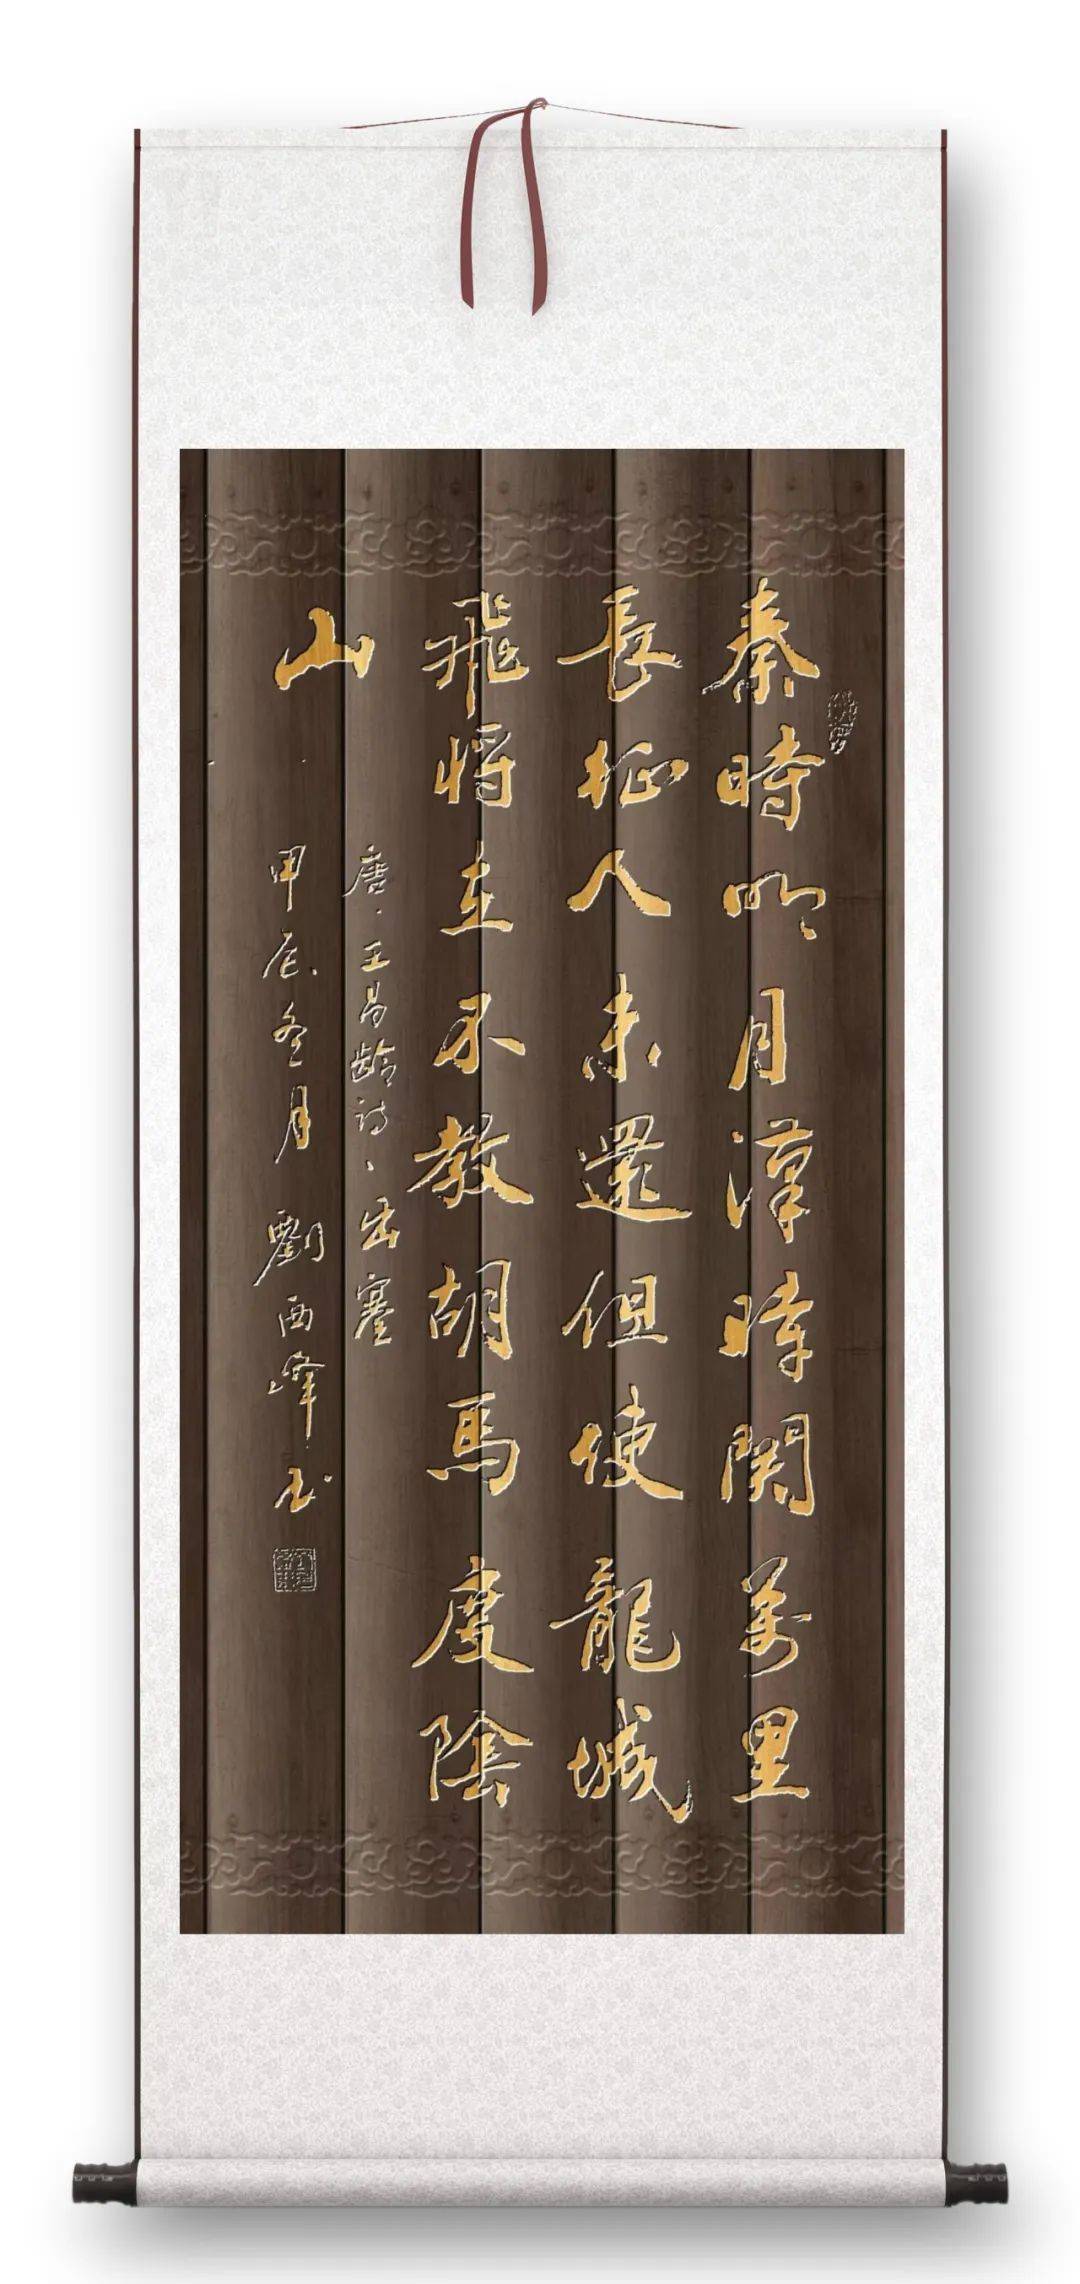 秦時明月漢時関萬里
長征人未還但使龍城
飛将在不教胡馬度陰
山
唐·王昌龄诗、出塞
甲辰冬月 劉西峰书